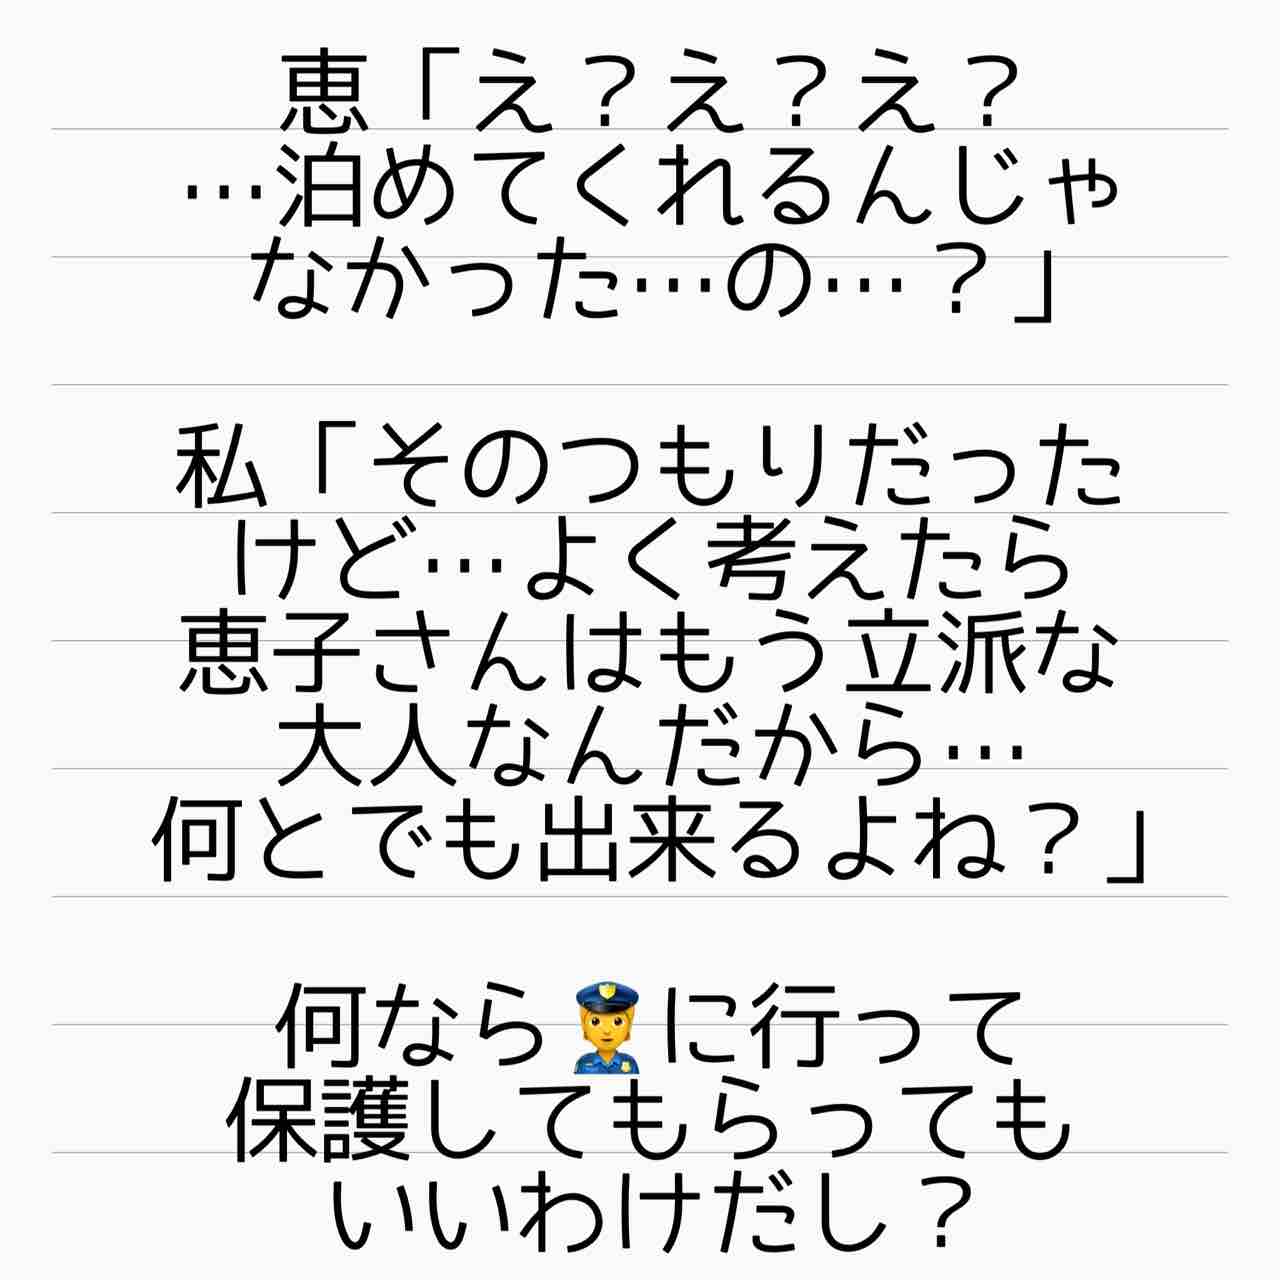 恵「え？え？え？
…泊めてくれるんじゃ
なかった…の…？」
私「そのつもりだった
けど…よく考えたら
恵子さんはもう立派な
大人なんだから…
何とでも出来るよね？」
何なら👮に行って
保護してもらっても
いいわけだし？